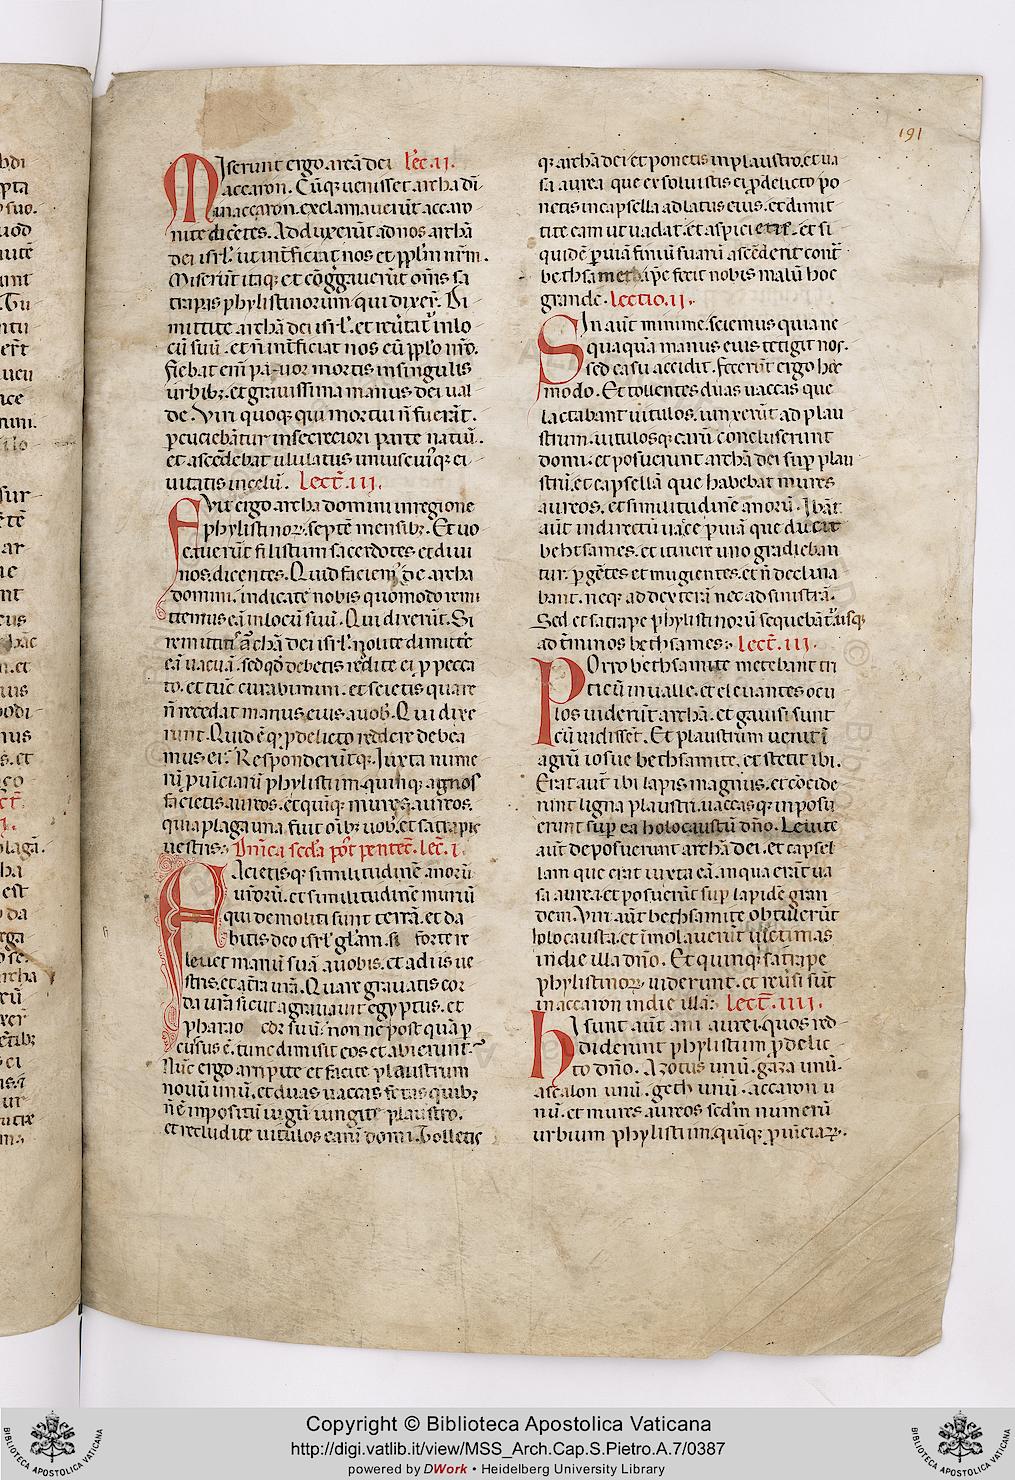 191
Miserunt ergo archã dei lec̃.ii.
in accaron. Cũq; uenisset archa dñi
in accaron. exclamauerũt accaro
nite dicẽtes. Adduxerũt ad nos archã
dei isrł. ut int̃ficiat nos et ppłm nr̃m.
Miserũt itaq; et cõg̃gauerũt om̃s sa
trapas phylistinorum qui dixer̃. Di
mittite archã dei isrł. et reũtat̃ in lo
cũ suũ. et ñ int̃ficiat nos cũ ppło nr̃o.
Fiebat em̃ pauor mortis in singulis
urbib;. et grauissima manus dei ual
de. Viri quoq; qui mortui ñ fuerãt.
pcuciebãtur in secreciori parte natiũ.
et ascẽdebat ululatus uniuscuiq; ci
uitatis in celũ. Lect̃.iii.
Fvit ergo archa domini in regione
phylistinor. septẽ mensib;. Et uo
cauerũt filistiim sacerdotes et diui
nos. dicentes. Quid faciem' de archa
domini. indicate nobis quõmodo remi
ttemus eã in locũ suũ. Qui dixerũt. Si
remittitis archã dei isrł. nolite dimittẽ
eã uacuã. sed qd̃ debetis reddite ei p pecca
to. et tũc curabimini. et scietis quare
ñ recedat manus eius a uob̃. Qui dixe
runt. Quid ẽ q; p delicto reddere debea
mus ei. Responderũtq;. Juxta nume
rũ puĩciarũ phylistiim. quinq; agnos
facietis aureos. et quinq; mures aureos.
quia plaga una fuit oĩb; uob̃. et satrapis
uestris. Dñica scđa pt̃ pentec̃. lec̃.i.
Facietisq; similitudinẽ anorũ
urõrũ. et similitudinẽ muriũ
qui demoliti sunt terrã. et da
bitis deo isrł. głam. si forte re
leuet manũ suã a uobis. et a diis ue
stris. et a t̃ra ur̃a. Quare grauatis cor
da ur̃a sicut agrauauit egyptus. et
pharao cor suũ. non ne post quã p
cusus ẽ. tunc dimisit eos et abierunt.
Nũc ergo arripite et facite plaustrum
nouũ unũ. et duas uaccas fetas quib;
ñ ẽ impositũ iugũ iungite plaustro.
et recludite uitulos earũ domi. Tolletis
q; archã dei et ponetis in plaustro. et ua
sa aurea que exsoluistis ei p delicto po
netis in capsella ad latus eius. et dimit
tite eam ut uadat. et aspicietis. et si
quidẽ p uiã finiũ suarũ ascẽderit cont̃
bethsames. ipe fecit nobis malũ hoc
grande. Lectio.ii.
Sin aut̃ minime. sciemus quia ne
quaquã manus eius tetigit nos.
sed casu accidit. Fecerũt ergo hoc
modo. Et tollentes duas uaccas que
lactabant uitulos. iunxerũt ad plau
strum. uitulosq; earũ concluserunt
domi. et posuerunt archã dei sup plau
strũ. et capsellã que habebat mures
aureos. et similitudinẽ anorũ. Ibãt
aut̃ in directũ uacce p uiã que ducit
behtsames. et itinere uno gradieban
tur. pgẽtes et mugientes. et ñ declina
bant. neq; ad dexterã nec ad sinistrã.
Sed et satrape phylistinorũ sequebãt̃ usq;
ad t̃minos bethsames. Lect̃.iii.
Porro bethsamite metebant tri
ticũ in ualle. et eleuantes ocu
los uiderũt archã. et gauisi sunt
cũ uidisset̃. Et plaustrum uenit ĩ
agrũ iosue bethsamite. et stetit ibi.
Erat aut̃ ibi lapis magnus. et cõcide
runt ligna plaustri. uaccasq; inposu
erunt sup ea holocaustũ dño. Leuite
aut̃ deposuerunt archã dei. et capsel
lam que erat iuxta eã. in qua erãt ua
sa aurea. et posuerũt sup lapidẽ gran
dem. Viri aut̃ bethsamite obtulerũt
holocausta. et im̃olauerũt uictimas
in die illa dño. Et quinq; satrape
phylistinor. uiderunt. et reũsi sũt
in accaron in die illa. Lect̃.iiii.
hI sunt aut̃ ani aurei. quos red
diderunt phylistiim p delic
to dño. Azotus unũ. gaza unũ.
ascalon unũ. geth unũ. accaron u
nũ. et mures aureos scđm numerũ
urbium phylistiim. quinq; puĩciar.
Copyright © Biblioteca Apostolica Vaticana
http://digi.vatlib.it/view/MSS_Arch.Cap.S.Pietro.A.7/0387
powered by DWork • Heidelberg University Library
BIBLIOTECA APOSTOLICA VATICANA
BIBLIOTECA APOSTOLICA VATICANA